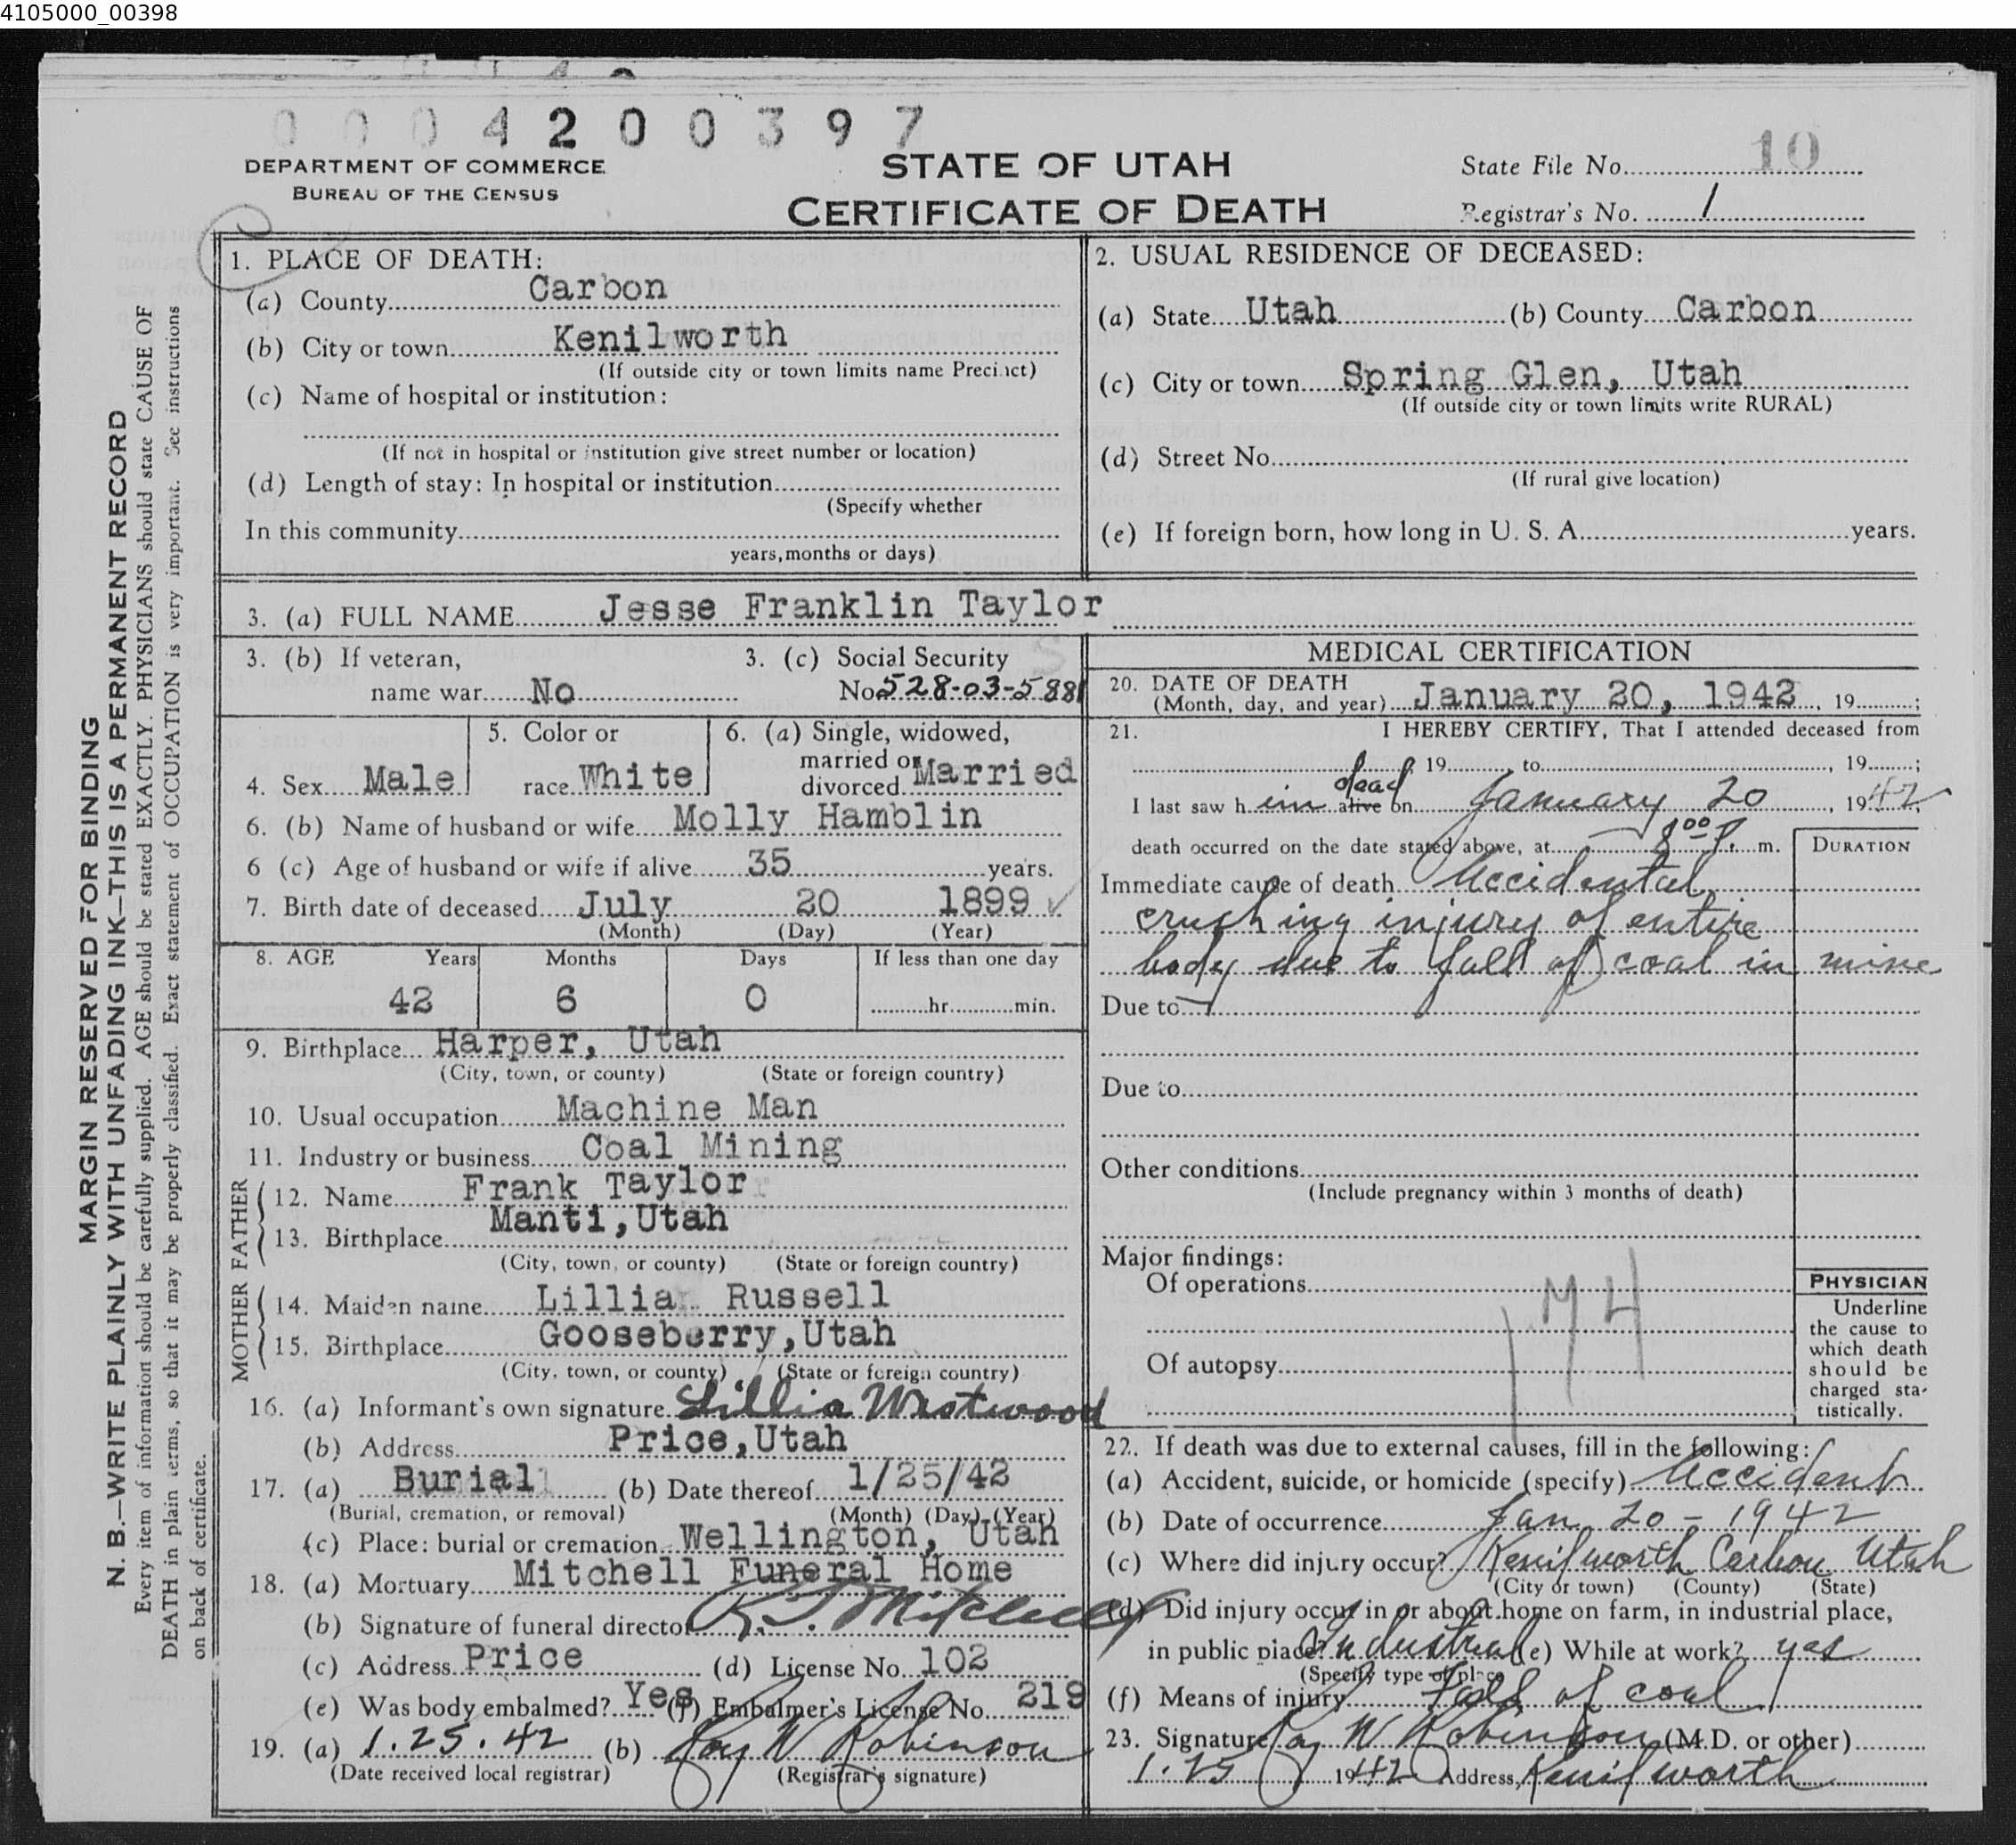 4105000_00398
0004200397
DEPARTMENT OF COMMERCE
BUREAU OF THE CENSUS
STATE OF UTAH
CERTIFICATE OF DEATH
State File No. 10
Registrar's No. 1
MARGIN RESERVED FOR BINDING
N. B.—WRITE PLAINLY WITH UNFADING INK—THIS IS A PERMANENT RECORD
Every item of information should be carefully supplied. AGE should be stated EXACTLY. PHYSICIANS should state CAUSE OF
DEATH in plain terms, so that it may be properly classified. Exact statement of OCCUPATION is very important. See instructions
on back of certificate.
1. PLACE OF DEATH:
(a) County Carbon
(b) City or town Kenilworth
(If outside city or town limits name Precinct)
(c) Name of hospital or institution:
(If not in hospital or institution give street number or location)
(d) Length of stay: In hospital or institution
(Specify whether
In this community
years, months or days)
2. USUAL RESIDENCE OF DECEASED:
(a) State Utah (b) County Carbon
(c) City or town Spring Glen, Utah
(If outside city or town limits write RURAL)
(d) Street No.
(If rural give location)
(e) If foreign born, how long in U. S. A. years.
3. (a) FULL NAME Jesse Franklin Taylor
3. (b) If veteran, 3. (c) Social Security
name war No No. 528-03-5881
4. Sex Male 5. Color or race White 6. (a) Single, widowed, married or divorced Married
6. (b) Name of husband or wife Molly Hamblin
6 (c) Age of husband or wife if alive 35 years.
7. Birth date of deceased July 20 1899
(Month) (Day) (Year)
8. AGE Years Months Days If less than one day
42 6 0 hr. min.
9. Birthplace Harper, Utah
(City, town, or county) (State or foreign country)
10. Usual occupation Machine Man
11. Industry or business Coal Mining
FATHER
12. Name Frank Taylor
13. Birthplace Manti, Utah
(City, town, or county) (State or foreign country)
MOTHER
14. Maiden name Lillian Russell
15. Birthplace Gooseberry, Utah
(City, town, or county) (State or foreign country)
16. (a) Informant's own signature Lillia Westwood
(b) Address Price, Utah
17. (a) Burial (b) Date thereof 1/25/42
(Burial, cremation, or removal) (Month) (Day) (Year)
(c) Place: burial or cremation Wellington, Utah
18. (a) Mortuary Mitchell Funeral Home
(b) Signature of funeral director Mitchell
(c) Address Price (d) License No. 102
(e) Was body embalmed? Yes (f) Embalmer's License No. 219
19. (a) 1.25.42 (b) Roy W Robinson
(Date received local registrar) (Registrar's signature)
MEDICAL CERTIFICATION
20. DATE OF DEATH
(Month, day, and year) January 20, 1942, 19 ;
21. I HEREBY CERTIFY, That I attended deceased from
, 19 to , 19 ;
dead
I last saw h im alive on January 20, 1942,
death occurred on the date stated above, at 8 00 P. m.
DURATION
Immediate cause of death Accidental
crushing injury of entire
body due to fall of coal in mine
Due to
Due to
Other conditions
(Include pregnancy within 3 months of death)
Major findings:
Of operations
Of autopsy
PHYSICIAN
Underline
the cause to
which death
should be
charged sta-
tistically.
22. If death was due to external causes, fill in the following:
(a) Accident, suicide, or homicide (specify) Accident
(b) Date of occurrence Jan 20 - 1942
(c) Where did injury occur? Kenilworth Carbon Utah
(City or town) (County) (State)
(d) Did injury occur in or about home on farm, in industrial place,
in public place? Industrial (e) While at work? yes
(Specify type of place
(f) Means of injury Fall of coal
23. Signature Roy W Robinson (M.D. or other)
1.25 1942 Address, Kenilworth